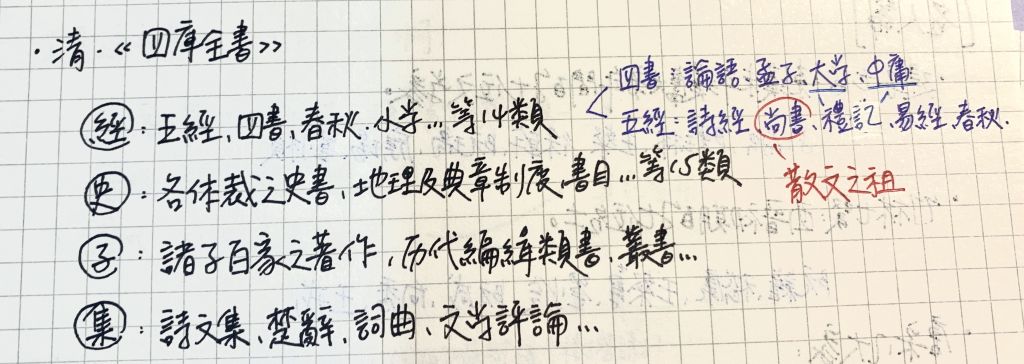 ·清·《四庫全書》
經：五經、四書、春秋、小学…等14類
四書：論語、孟子、大学、中庸
五經：詩經、尚書、禮記、易經、春秋.
散文之祖
史：各体裁之史書、地理及典章制度、書目…等15類
子：諸子百家之著作，历代編緝類書、叢書…
集：詩文集、楚辭、詞曲、文学評論…